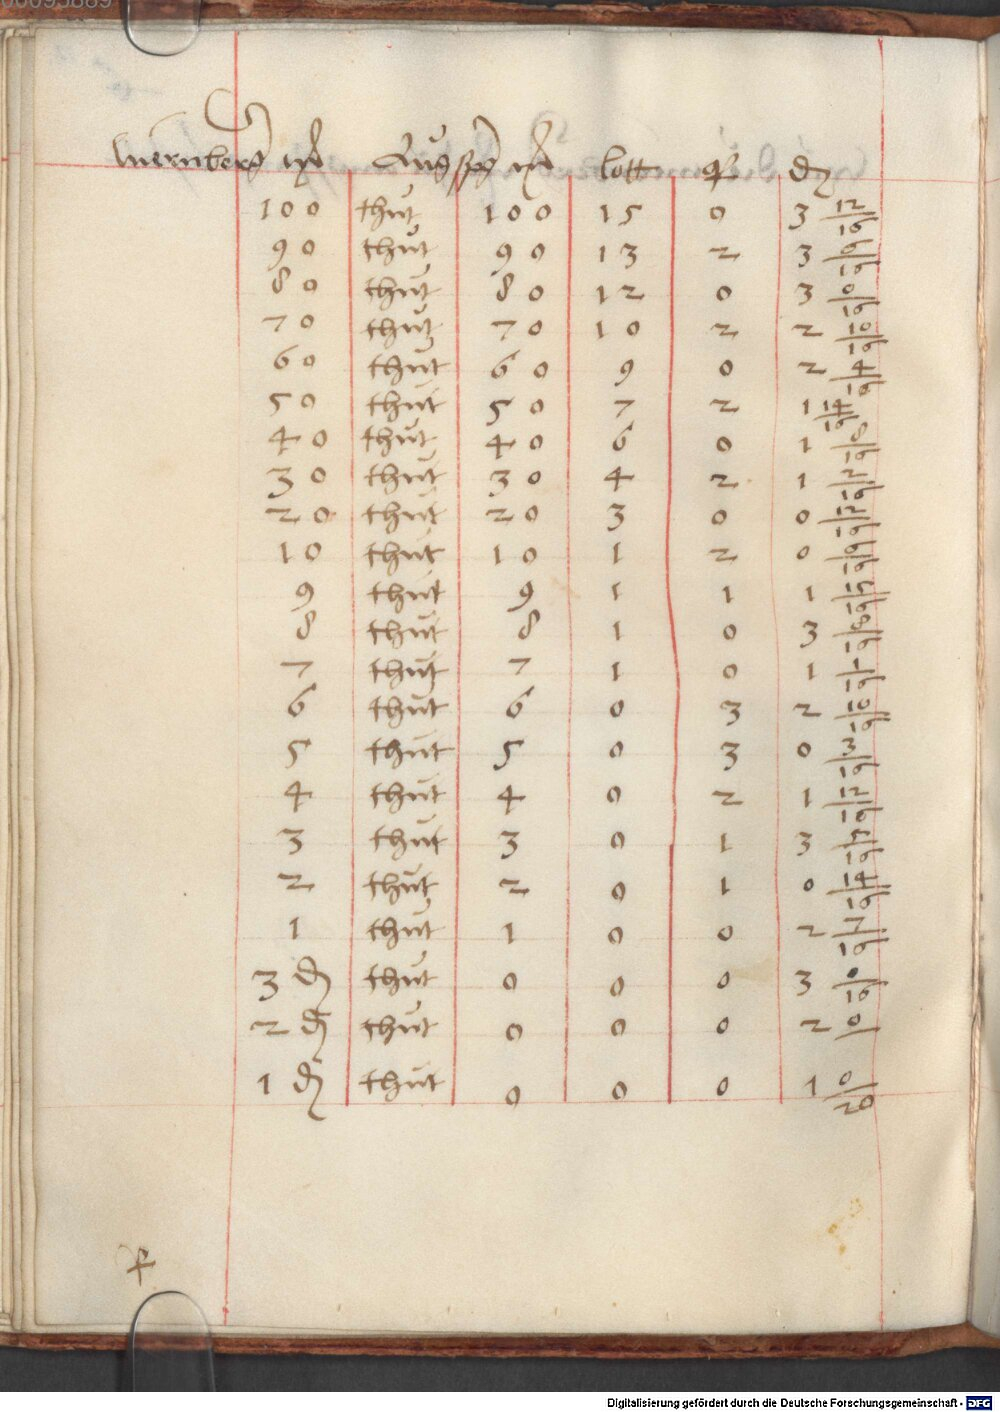 Nuernberg mr Augspg mr lott q d
100 thut 100 15 0 3 12/16
90 thut 90 13 2 3 6/16
80 thut 80 12 0 3 0/16
70 thut 70 10 2 2 10/16
60 thut 60 9 0 2 4/16
50 thut 50 7 2 1 14/16
40 thut 40 6 0 1 8/16
30 thut 30 4 2 1 2/16
20 thut 20 3 0 0 12/16
10 thut 10 1 2 0 6/16
9 thut 9 1 1 1 15/16
8 thut 8 1 0 3 8/16
7 thut 7 1 0 1 1/16
6 thut 6 0 3 2 10/16
5 thut 5 0 3 0 3/16
4 thut 4 0 2 1 12/16
3 thut 3 0 1 3 5/16
2 thut 2 0 1 0 14/16
1 thut 1 0 0 2 7/16
3 d thut 0 0 0 3 0/16
2 d thut 0 0 0 2 0
1 d thut 0 0 0 1 0/20
Digitalisierung gefördert durch die Deutsche Forschungsgemeinschaft - DFG